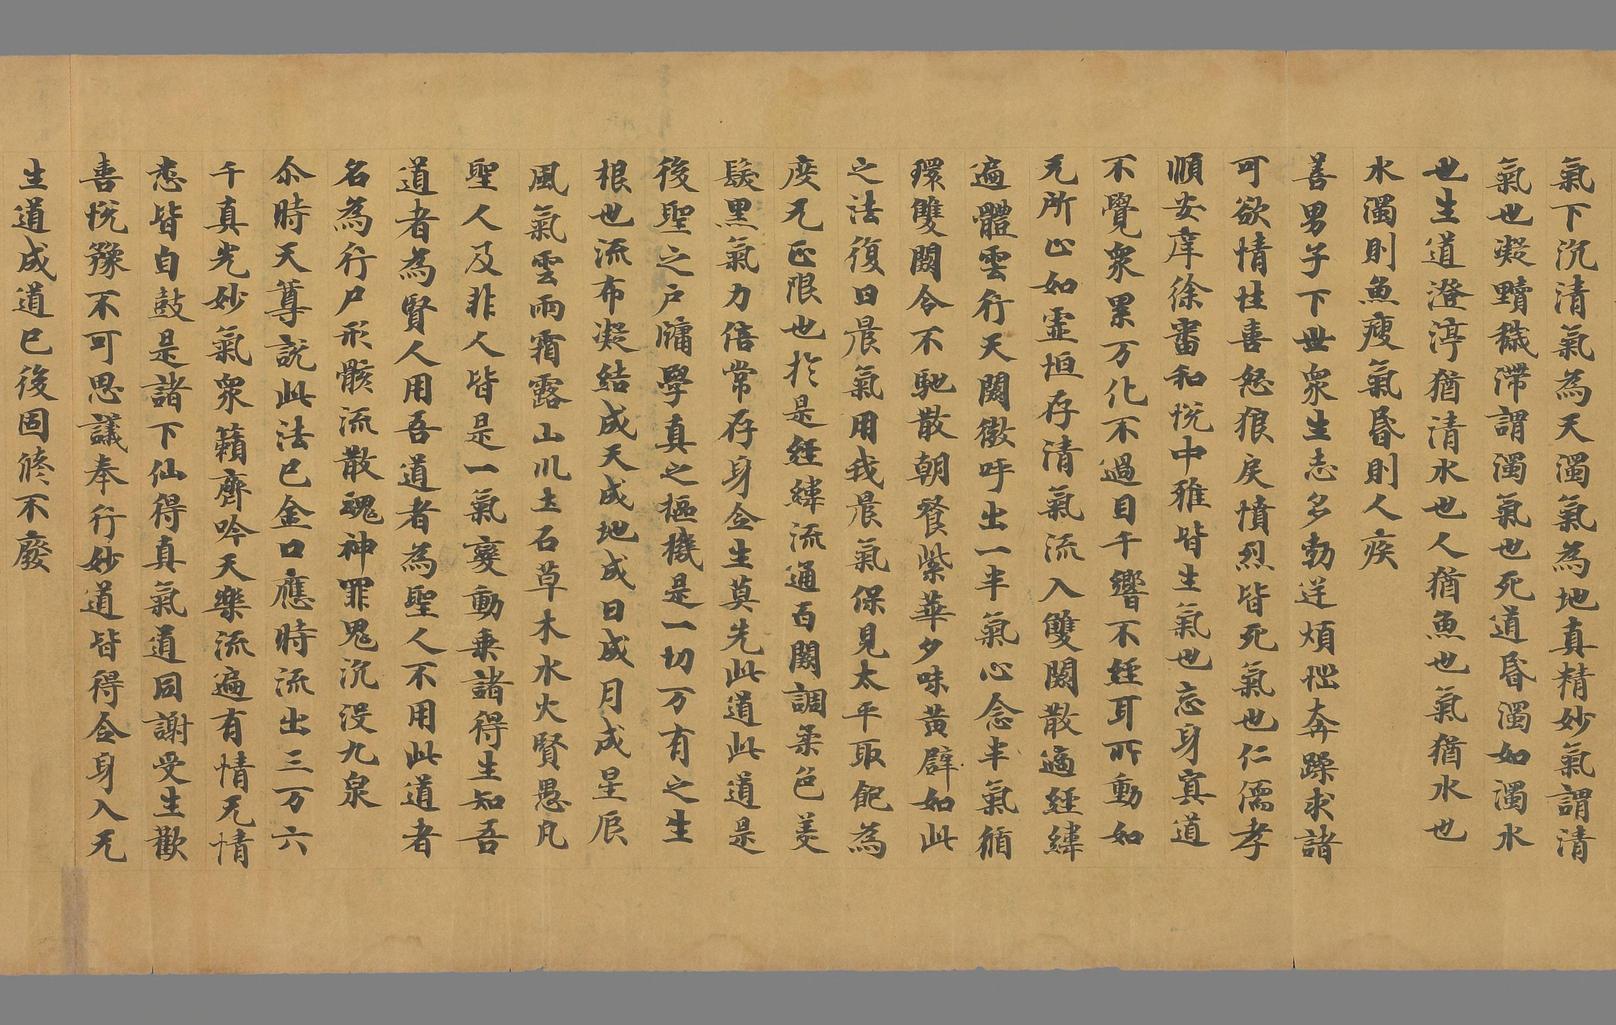 氣下沉清氣為天濁氣為地真精妙氣謂清
氣世凝黷穢滯謂濁氣也死道昏濁如濁水
也生道澄渟猶清水也人猶魚也氣猶水也
水濁則魚瘦氣昏則人疾
善男子下世衆生志多勃逆煩惱奔躁求諸
可欲情性喜怒狼戾憤烈皆死氣也仁儒孝
順安庠徐審和悅中雅皆生氣也忘身寘道
不覺衆累万化不過目千響不經耳所動如
无所止如霊恒存清氣流入雙闕散適經緯
遍體雲行天闕徹呼出一半氣心念半氣循
環雙闕令不馳散朝餐紫華夕味黃騂如此
之法復日晨氣用我晨氣保見太平取飽為
度无正限也於是經緯流通百闕調柔色美
髮黑氣力倍常存身合生莫先此道此道是
後聖之户牖學真之樞機是一切万有之生
根也流布凝結成天成地成日成月成星辰
風氣雲雨霜露山川土石草木水火賢愚凡
聖人及非人皆是一氣變動乗諸得生知吾
道者為賢人用吾道者為聖人不用此道者
名為行尸形骸流散魂神罪鬼沉没九泉
尒時天尊說此法已金口應時流出三万六
千真光妙氣衆籟齊吟天樂流遍有情无情
悉皆自鼓是諸下仙得真氣道同謝受生歡
喜悅豫不可思議奉行妙道皆得合身入无
生道成道已後固俢不廢